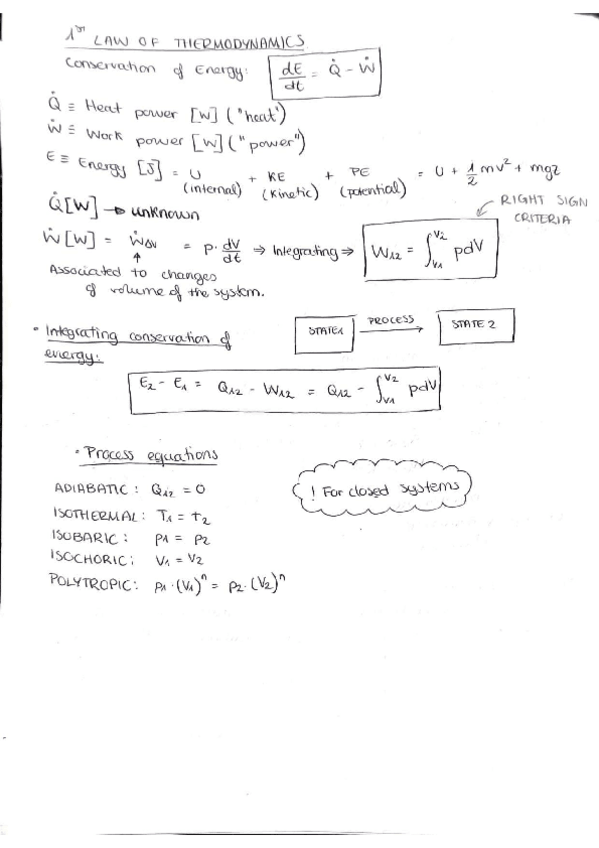 1st LAW OF THERMODYNAMICS
Conservation of Energy: dE/dt = Q̇ - Ẇ
Q̇ ≡ Heat power [W] ("heat")
Ẇ ≡ Work power [W] ("power")
E ≡ Energy [J] = U (internal) + KE (kinetic) + PE (potential) = U + 1/2 mv² + mgz
RIGHT SIGN CRITERIA
Q̇[W] → unknown
Ẇ [W] = Ẇ_ΔV = p · dV/dt ⇒ Integrating ⇒ W₁₂ = ∫_V1^V2 pdV
↑
Associated to changes
of volume of the system.
• Integrating conservation of
energy:
STATE 1 PROCESS → STATE 2
E₂ - E₁ = Q₁₂ - W₁₂ = Q₁₂ - ∫_V1^V2 pdV
• Process equations
ADIABATIC: Q₁₂ = 0
! For closed systems
ISOTHERMAL: T₁ = t₂
ISOBARIC: p₁ = p₂
ISOCHORIC: V₁ = V₂
POLYTROPIC: p₁ · (V₁)ⁿ = p₂ · (V₂)ⁿ